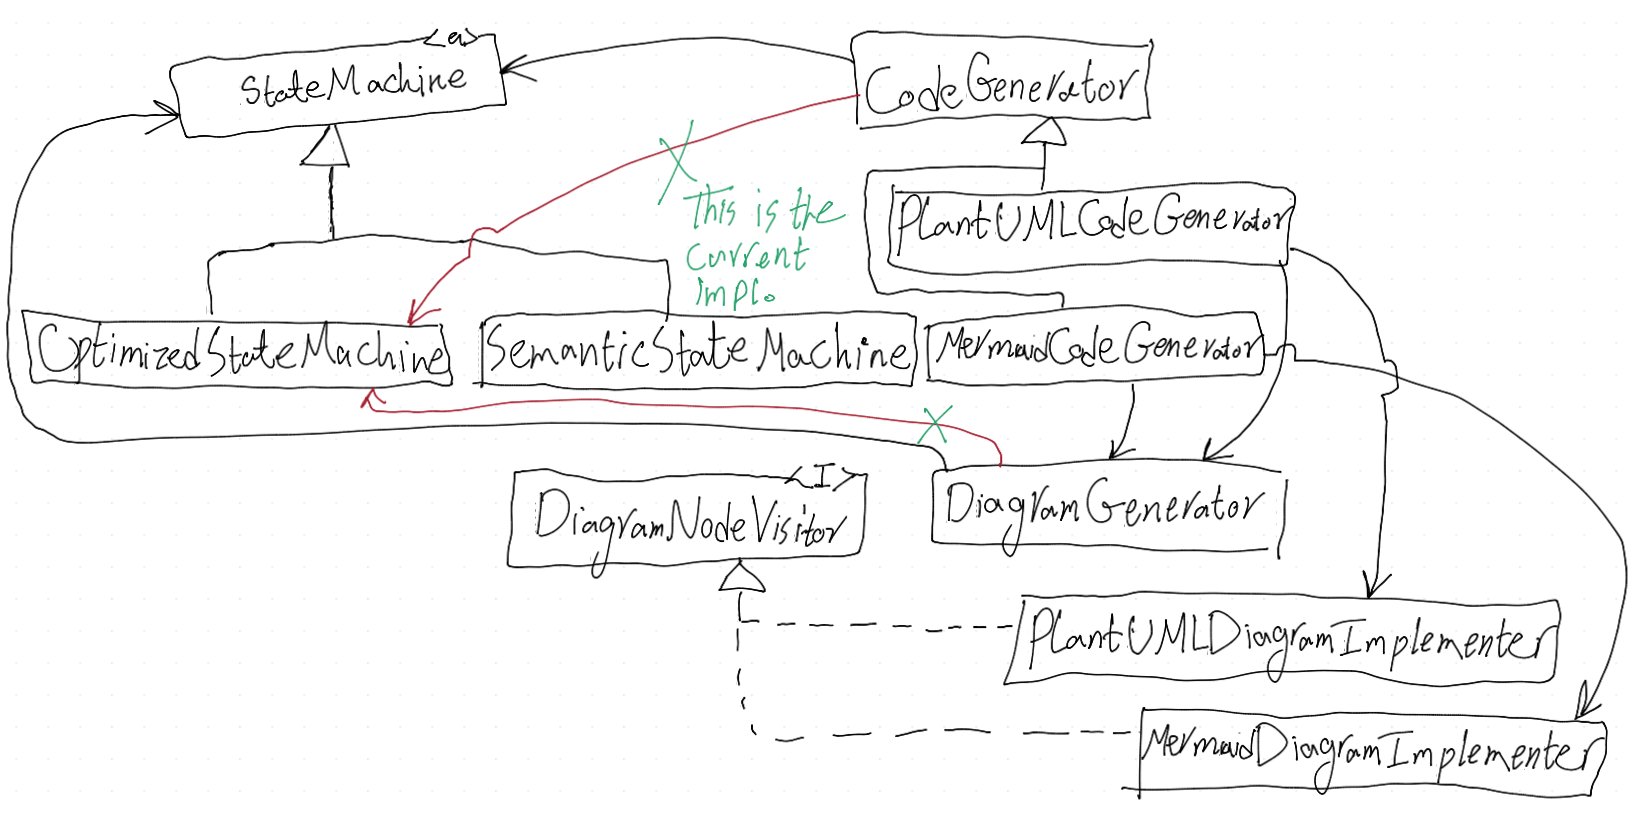 <a>
StateMachine
CodeGenerator
This is the
current
impl.
PlantUMLCodeGenerator
OptimizedStateMachine
SemanticStateMachine
MermaidCodeGenerator
<I>
DiagramNodeVisitor
DiagramGenerator
PlantUMLDiagramImplementer
MermaidDiagramImplementer